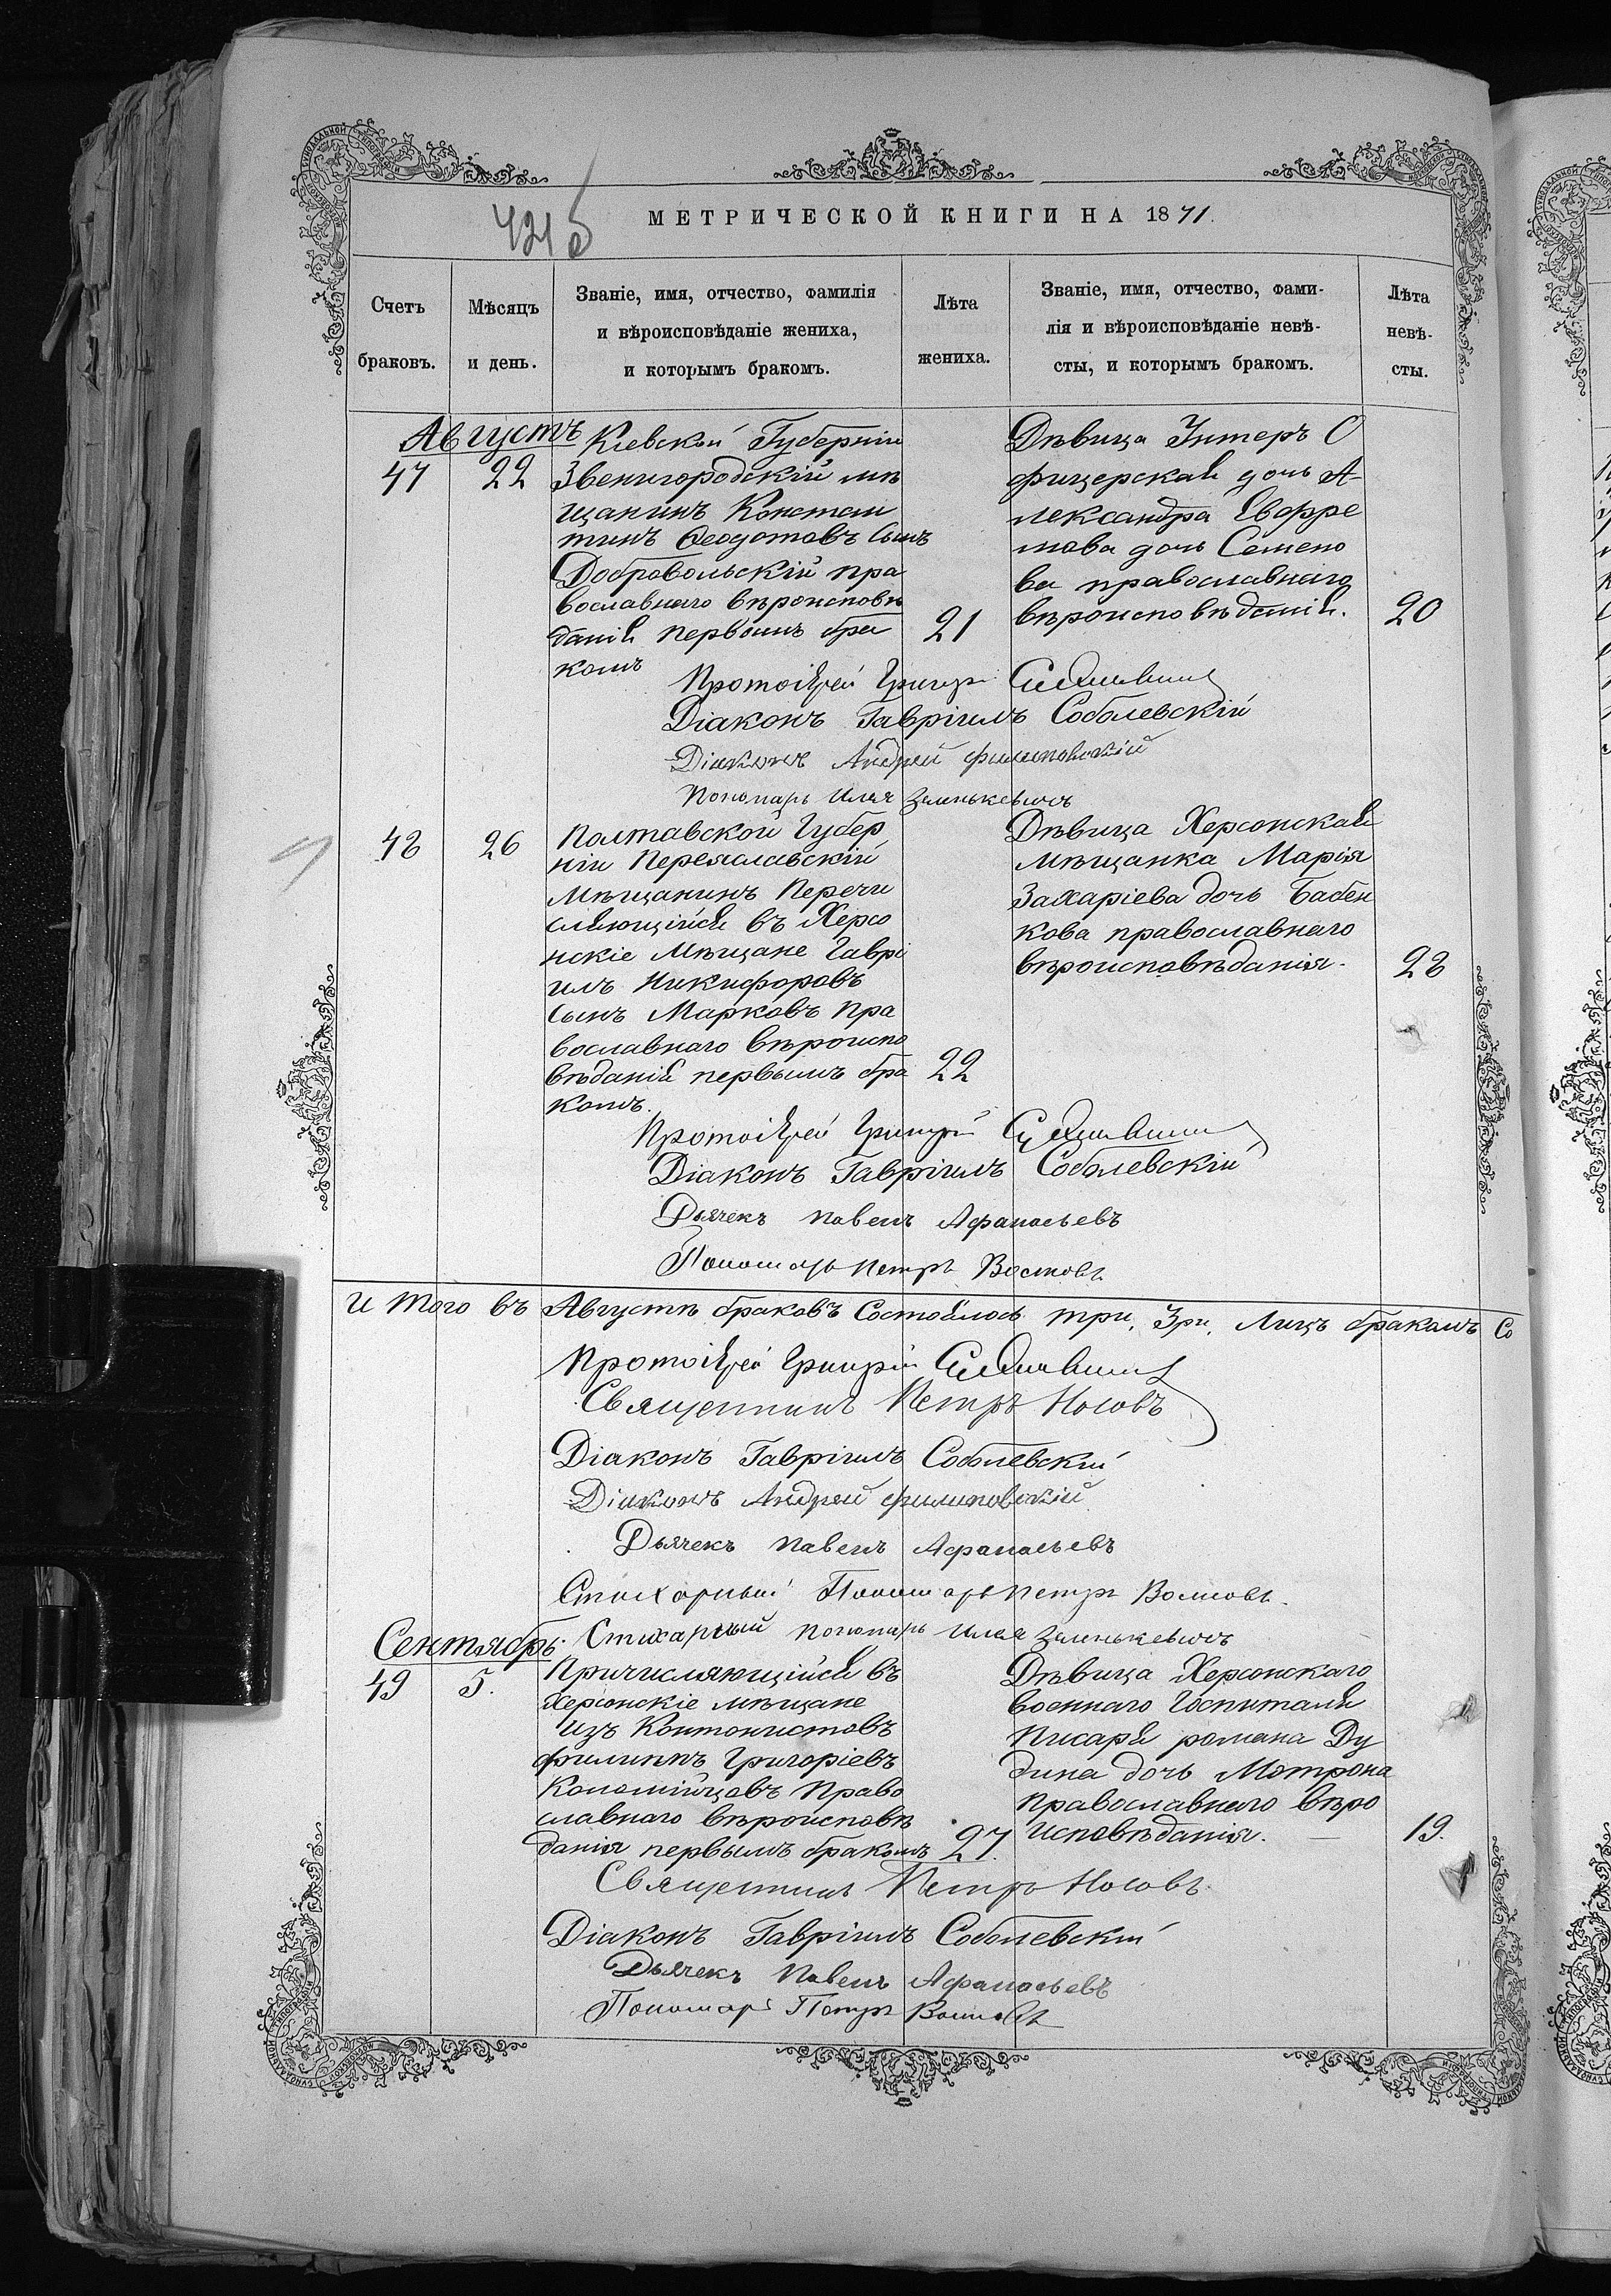 МЕТРИЧЕСКОЙ КНИГИ НА 1871.
Счетъ браковъ.
Мѣсяцъ и день.
Званіе, имя, отчество, фамилія
и вѣроисповѣданіе жениха,
и которымъ бракомъ.
Лѣта жениха.
Званіе, имя, отчество, фами-
лія и вѣроисповѣданіе невѣ-
сты, и которымъ бракомъ.
Лѣта невѣ-
сты.
Августъ
47
22
Кіевской Губерніи
Звенигородскій мѣ
щанинъ Констан
тинъ Ѳеодотовъ сынъ
Добровольскій пра
вославнаго вѣроисповѣ
данія первымъ бра
комъ
21
Дѣвица Унтеръ О
фицерская дочь А-
лександра Евфре
мова дочь Семено
ва православнаго
вѣроисповѣданія.
20
Протоіерей Григорій
Діаконъ Гавріилъ Соболевскій
Діаконъ Андрей Филиповскій
Пономарь Илья Зеленькевичъ
48
26
Полтавской Губер
ніи Переяславскій
Мѣщанинъ Перечи
сляющійся въ Херсо
нскіе Мѣщане Гаврі
илъ Никифоровъ
Сынъ Марковъ Пра
вославнаго вѣроиспо
вѣданія первымъ бра
комъ.
22
Дѣвица Херсонская
Мѣщанка Марія
Захаріева дочь Бабен
кова православнаго
вѣроисповѣданія.
28
Протоіерей Григорій
Діаконъ Гавріилъ Соболевскій
Дьячекъ Павелъ Афанасьевъ
Пономарь Петръ
Итого въ Августѣ браковъ Состоялось три, Зри, Лицъ бракомъ Со
Протоіерей Григорій
Священникъ Петръ Носовъ
Діаконъ Гавріилъ Соболевскій
Діаконъ Андрей Филиповскій
Дьячекъ Павелъ Афанасьевъ
Стихарный Пономарь Петръ
Стихарный Пономарь Илья Зеленькевичъ
Сентябрь.
49
5.
Причисляющійся въ
Херсонскіе мѣщане
изъ Контонистовъ
Филиппъ Григоріевъ
Коломійцовъ Право
славнаго вѣроисповѣ
данія первымъ бракомъ
27.
Дѣвица Херсонскаго
военнаго Госпиталя
Писаря романа Ду
дина дочь Мотрона
Православнаго вѣро
исповѣданія.
19.
Священникъ Петръ Носовъ
Діаконъ Гавріилъ Соболевскій
Дьячекъ Павелъ Афанасьевъ
Пономарь Петръ